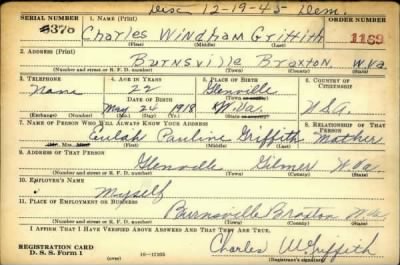 Disc 12-19-45 Dem.
SERIAL NUMBER 1. NAME (Print) ORDER NUMBER
Charles Windham Griffith 1189
(First) (Middle) (Last)
2. ADDRESS (Print)
Burnsville Braxton W.Va.
(Number and street or R. F. D. number) (Town) (County) (State)
3. TELEPHONE 4. AGE IN YEARS 5. PLACE OF BIRTH 6. COUNTRY OF CITIZENSHIP
None 22 Glenville
DATE OF BIRTH (Town or county)
May 24 1918 W.Va. U.S.A.
(Exchange) (Number) (Mo.) (Day) (Yr.) (State or country)
7. NAME OF PERSON WHO WILL ALWAYS KNOW YOUR ADDRESS 8. RELATIONSHIP OF THAT PERSON
Eulah Pauline Griffith Mother
(Mr., Mrs., Miss) (First) (Middle) (Last)
9. ADDRESS OF THAT PERSON
Glenville Gilmer W.Va.
(Number and street or R. F. D. number) (Town) (County) (State)
10. EMPLOYER'S NAME
Myself
11. PLACE OF EMPLOYMENT OR BUSINESS
Burnsville Braxton W.Va.
(Number and street or R. F. D. number) (Town) (County) (State)
I AFFIRM THAT I HAVE VERIFIED ABOVE ANSWERS AND THAT THEY ARE TRUE.
REGISTRATION CARD Charles W. Griffith
D. S. S. Form 1 (over) (Registrant's signature)